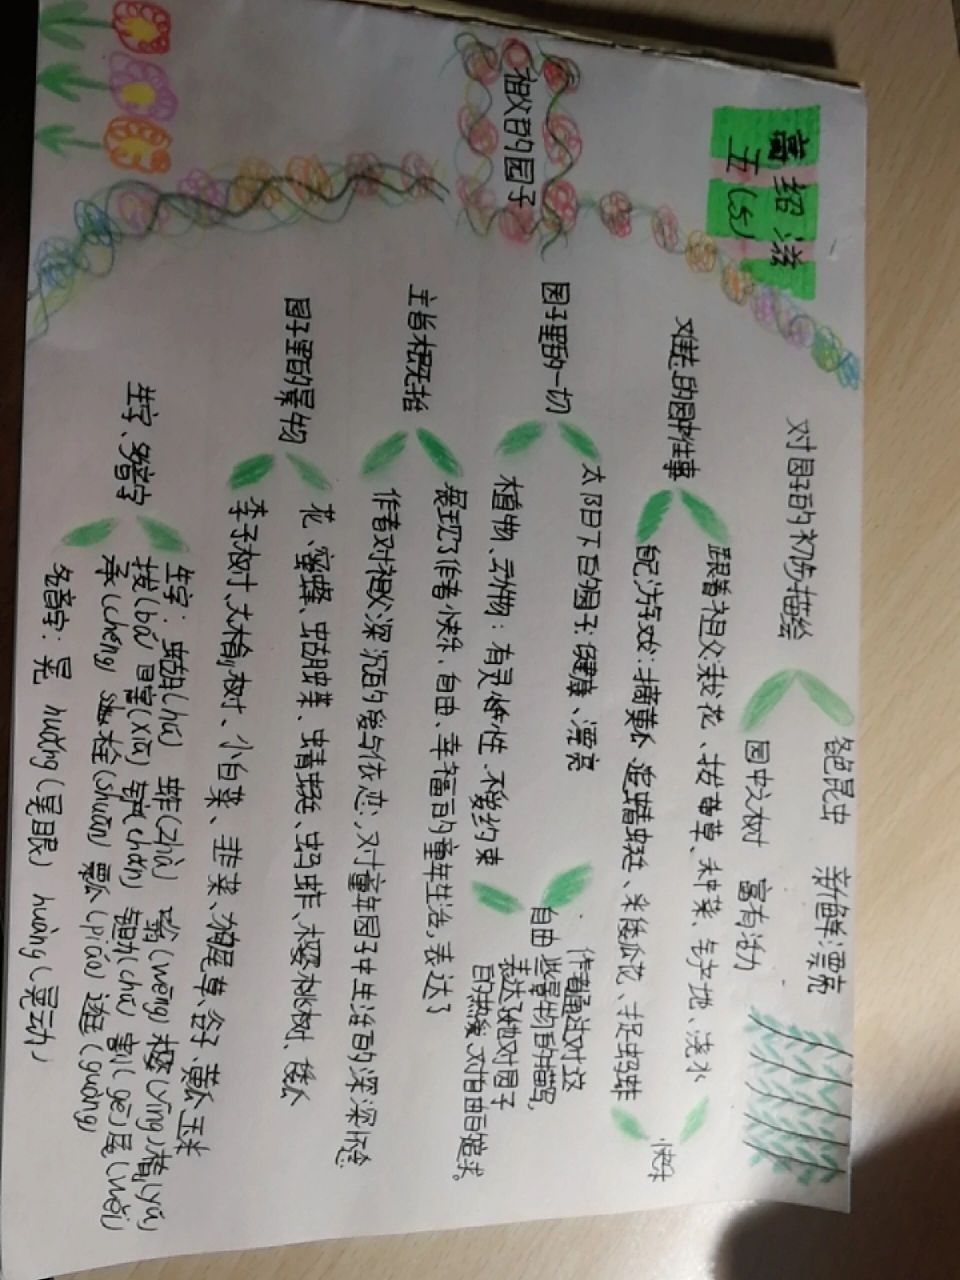 高绍滋
五(5)
祖父的园子
对园子的初步描绘
各色昆虫 新鲜漂亮
园中之树 富有活力
难忘的园中往事
跟着祖父栽花、拔草、种菜、铲地、浇水
自己游戏：摘黄瓜 追蜻蜓、采倭瓜花、捉蚂蚱
快乐
园子里的一切
太阳下的园子：健康、漂亮
植物、动物：有灵性、不受约束
自由
作者通过对这
些景物的描写，
表达了她对园子
的热爱、对自由的追求。
主旨概括
展现了作者快乐、自由、幸福的童年生活，表达了
作者对祖父深沉的爱与依恋，对童年园子中生活的深深怀念
园子里的景物
花、蜜蜂、蝴蝶、蜻蜓、蚂蚱、樱桃树、倭瓜
李子树、大榆树、小白菜、韭菜、狗尾草、谷子、黄瓜、玉米
生字、多音字
生字：蝴(hú) 蚱(zhà) 嗡(wēng) 樱(yīng) 榆(yú)
拔(bá) 晃(xiǎo) 铲(chǎn) 锄(chú) 割(gē) 尾(wěi)
承(chéng) 拴(shuān) 瓢(piáo) 逛(guàng)
多音字：晃 huǎng(晃眼) huàng(晃动)